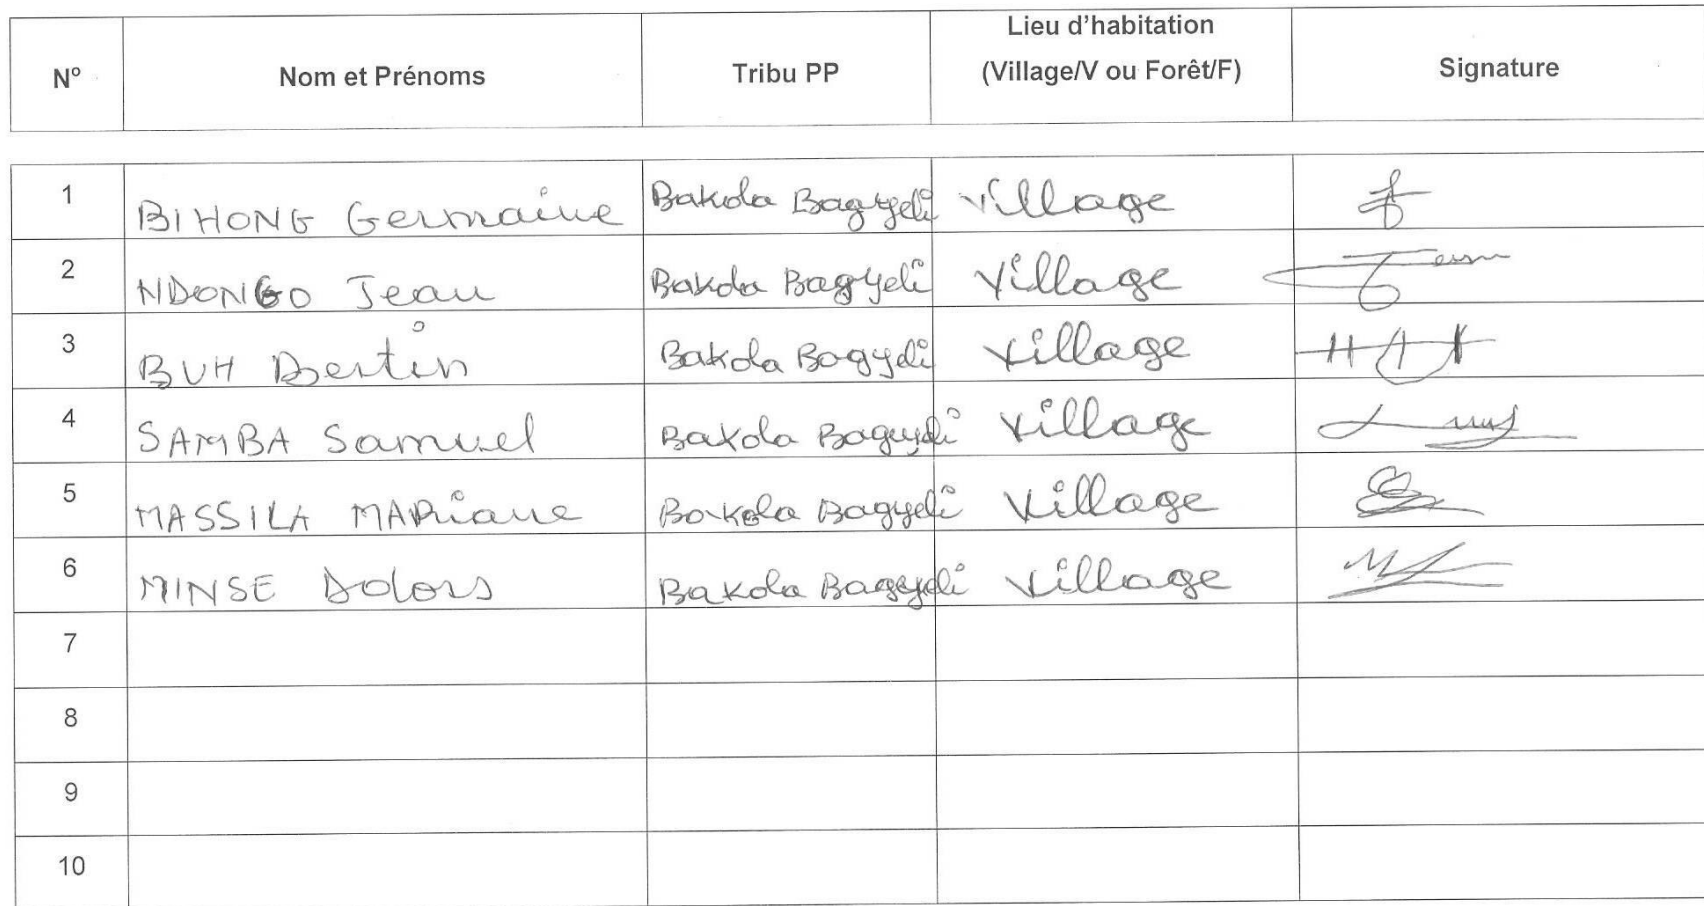 N° Nom et Prénoms Tribu PP Lieu d'habitation (Village/V ou Forêt/F) Signature
1 BIHONG Germaine Bakola Bagyeli Village
2 NDONGO Jean Bakola Bagyeli Village Jean
3 BUH Bertin Bakola Bagyeli Village
4 SAMBA Samuel Bakola Bagyeli Village
5 MASSILA MARiane Bakola Bagyeli Village
6 MINSE Dolors Bakola Bagyeli Village
7
8
9
10